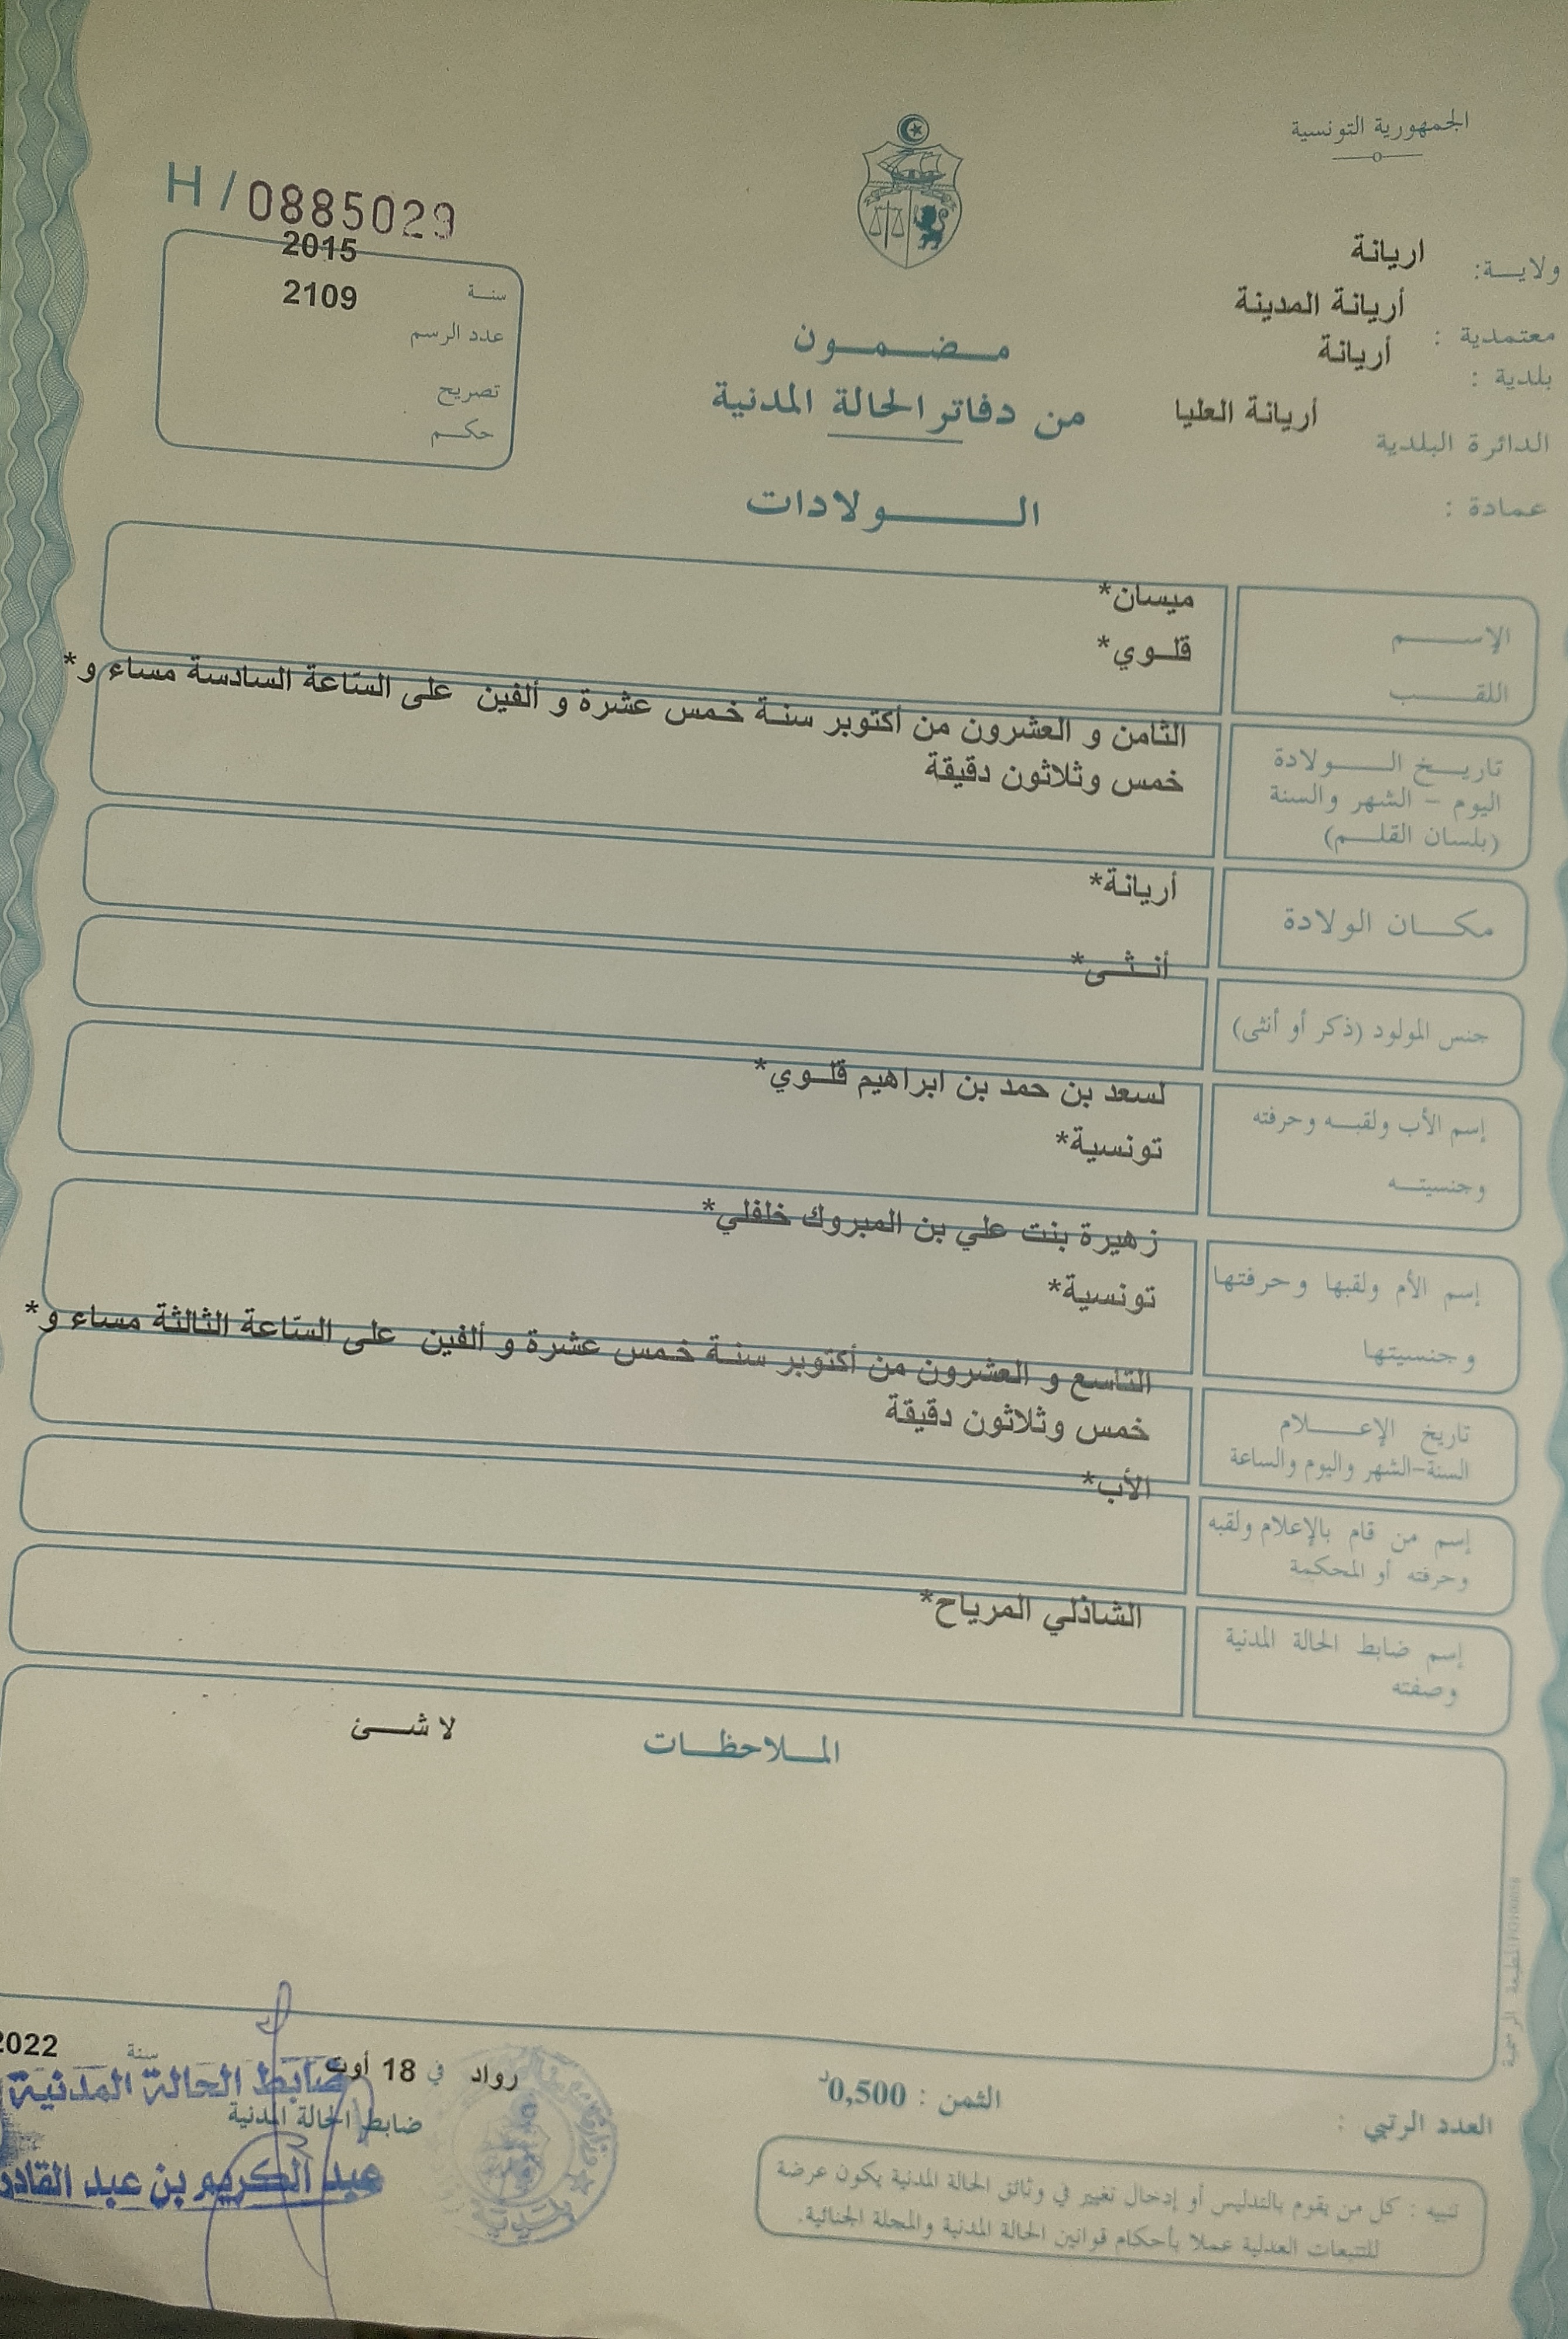 الجمهورية التونسية
H / 0885029
ولايـــة: اريانة
معتمدية : أريانة المدينة
بلدية : أريانة
الدائرة البلدية أريانة العليا
عمادة :
2015
سنـة
2109
عدد الرسم
تصريح
حكـم
مـضـمـون
من دفاتر الحالة المدنية
الـــولادات
الإســـم ميسان*
اللقـــب قلـوي*
تاريـخ الـــولادة
اليوم – الشهر والسنة
(بلسان القلـم)
الثامن و العشرون من أكتوبر سنـة خـمس عشرة و ألفين على السّاعة السادسة مساء و*
خمس وثلاثون دقيقة
مكـــان الولادة أريانة*
جنس المولود (ذكر أو أنثى) أنـثـى*
إسم الأب ولقبـه وحرفته لسعد بن حمد بن ابراهيم قلـوي*
وجنسيتـه تونسية*
إسم الأم ولقبها وحرفتها زهيرة بنت علي بن المبروك خلفلي*
وجنسيتها تونسية*
تاريخ الإعـــلام
السنة-الشهر واليوم والساعة
التاسع و العشرون من أكتوبر سنـة خـمس عشرة و ألفين على السّاعة الثالثة مساء و*
خمس وثلاثون دقيقة
إسم من قام بالإعلام ولقبه
وحرفته أو المحكمة
الأب*
إسم ضابط الحالة المدنية
وصفته
الشاذلي المرياح*
المـلاحظـات لا شـئ
رواد في 18 أوت سنة 2022
ضابط الحالة المدنية
ضابط الحالة المدنية
عبد الكريم بن عبد القادر
الثمن : 0,500د
العدد الرتبي :
تنبيه : كل من يقوم بالتدليس أو إدخال تغيير في وثائق الحالة المدنية يكون عرضة
للتتبعات العدلية عملا بأحكام قوانين الحالة المدنية والمجلة الجنائية.
المطبعة الرسمية